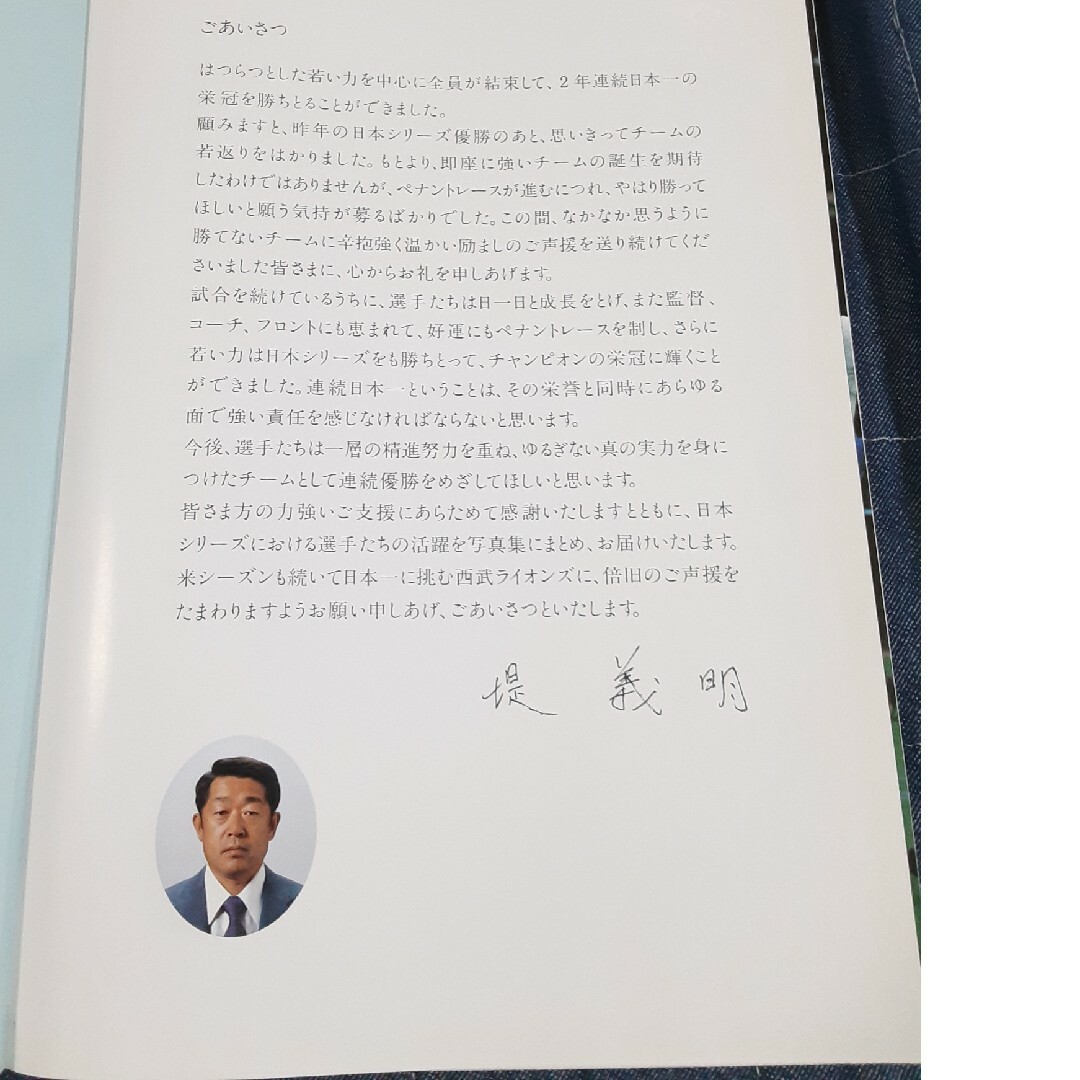 ごあいさつ
はつらつとした若い力を中心に全員が結束して、2年連続日本一の
栄冠を勝ちとることができました。
顧みますと、昨年の日本シリーズ優勝のあと、思いきってチームの
若返りをはかりました。もとより、即座に強いチームの誕生を期待
したわけではありませんが、ペナントレースが進むにつれ、やはり勝って
ほしいと願う気持が募るばかりでした。この間、なかなか思うように
勝てないチームに辛抱強く温かい励ましのご声援を送り続けてくだ
さいました皆さまに、心からお礼を申しあげます。
試合を続けているうちに、選手たちは日一日と成長をとげ、また監督、
コーチ、フロントにも恵まれて、好運にもペナントレースを制し、さらに
若い力は日本シリーズをも勝ちとって、チャンピオンの栄冠に輝くこと
ができました。連続日本一ということは、その栄誉と同時にあらゆる
面で強い責任を感じなければならないと思います。
今後、選手たちは一層の精進努力を重ね、ゆるぎない真の実力を身に
つけたチームとして連続優勝をめざしてほしいと思います。
皆さま方の力強いご支援にあらためて感謝いたしますとともに、日本
シリーズにおける選手たちの活躍を写真集にまとめ、お届けいたします。
来シーズンも続いて日本一に挑む西武ライオンズに、倍旧のご声援を
たまわりますようお願い申しあげ、ごあいさつといたします。
堤 義明